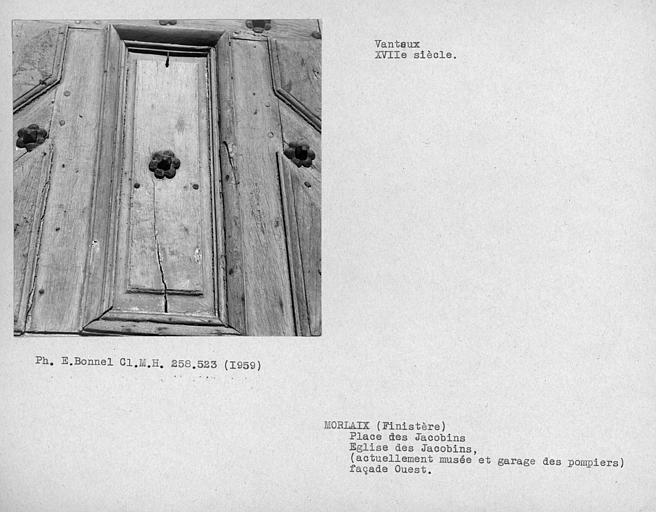 Vantaux
XVIIe siècle.
Ph. E.Bonnel Cl.M.H. 258.523 (I959)
MORLAIX (Finistère)
Place des Jacobins
Eglise des Jacobins,
(actuellement musée et garage des pompiers)
façade Ouest.